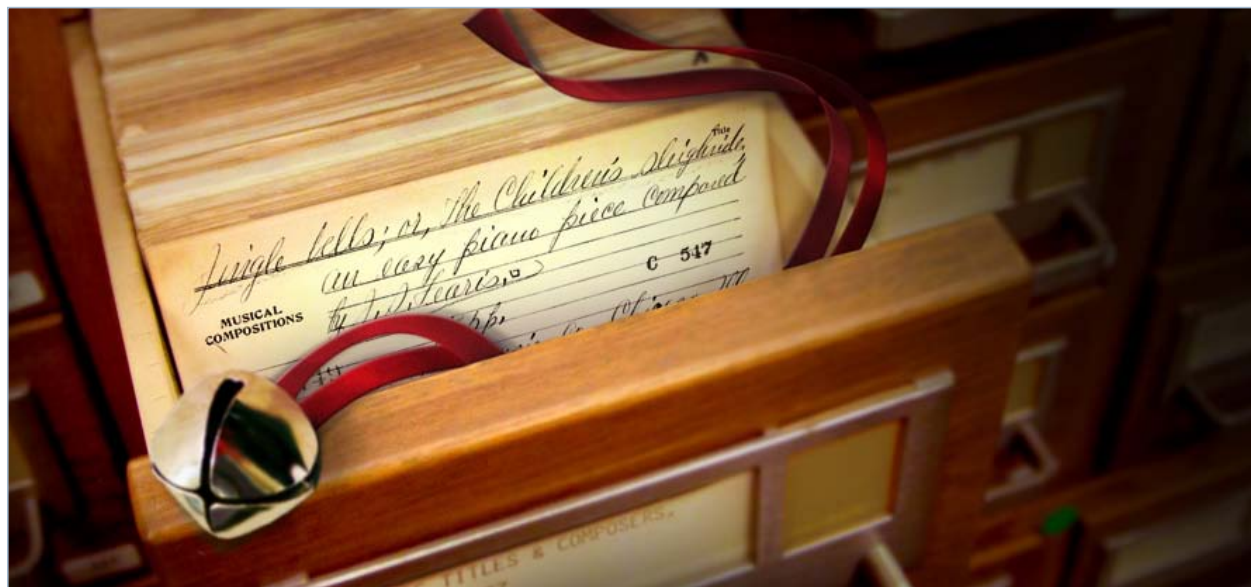 Title
Jingle bells; or, The Children's Sleighride,
an easy piano piece composed
C 547
MUSICAL
COMPOSITIONS
by
pp.
TITLES & COMPOSERS.